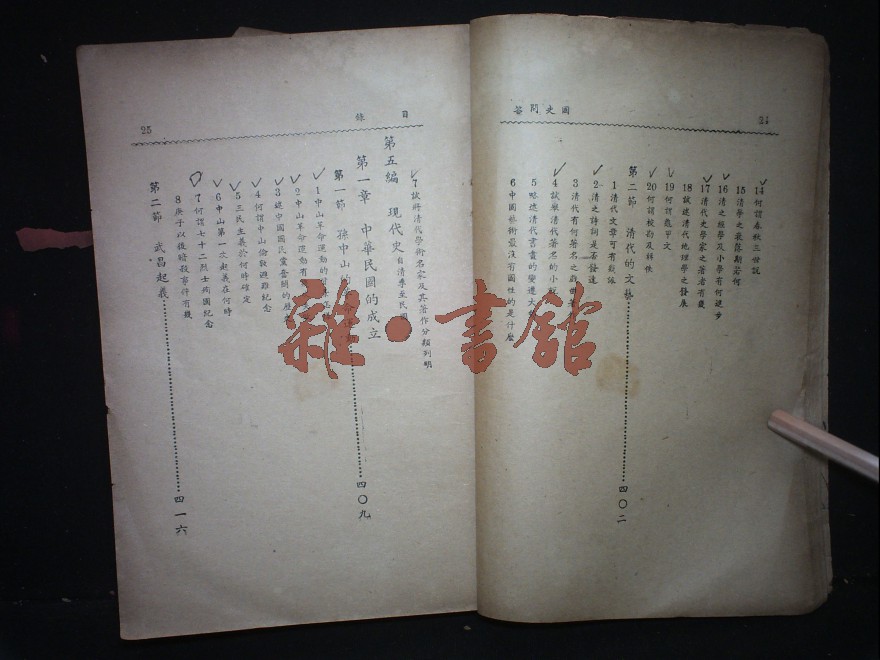 24
國史問答
14 何謂春秋三世說
15 清學之衰落期若何
16 清之經學及小學有何進步
17 清代史學家之著者有幾
18 試述清代地理學之發展
19 何謂龜甲文
20 何謂校勘及輯佚
第二節 清代的文藝 四〇二
1 清代文章可有幾派
2 清之詩詞是否發達
3 清代有何著名之戲曲
4 試舉清代著名的小說
5 略述清代書畫的變遷大
6 中國藝術最沒有國性的是什麼
目錄
25
7 試將清代學術名家及其著作分類列明
第五編 現代史 自清季至民國
第一章 中華民國的成立
第一節 孫中山的 四〇九
1 中山革命運動的
2 中山革命運動有
3 述中國國民黨發開的歷
4 何謂中山倫敦避難紀念
5 三民主義於何時確定
6 中山第一次起義在何時
7 何謂七十二烈士殉國紀念
8 庚子以後暗殺事件有幾
第二節 武昌起義 四一六
雜·書館